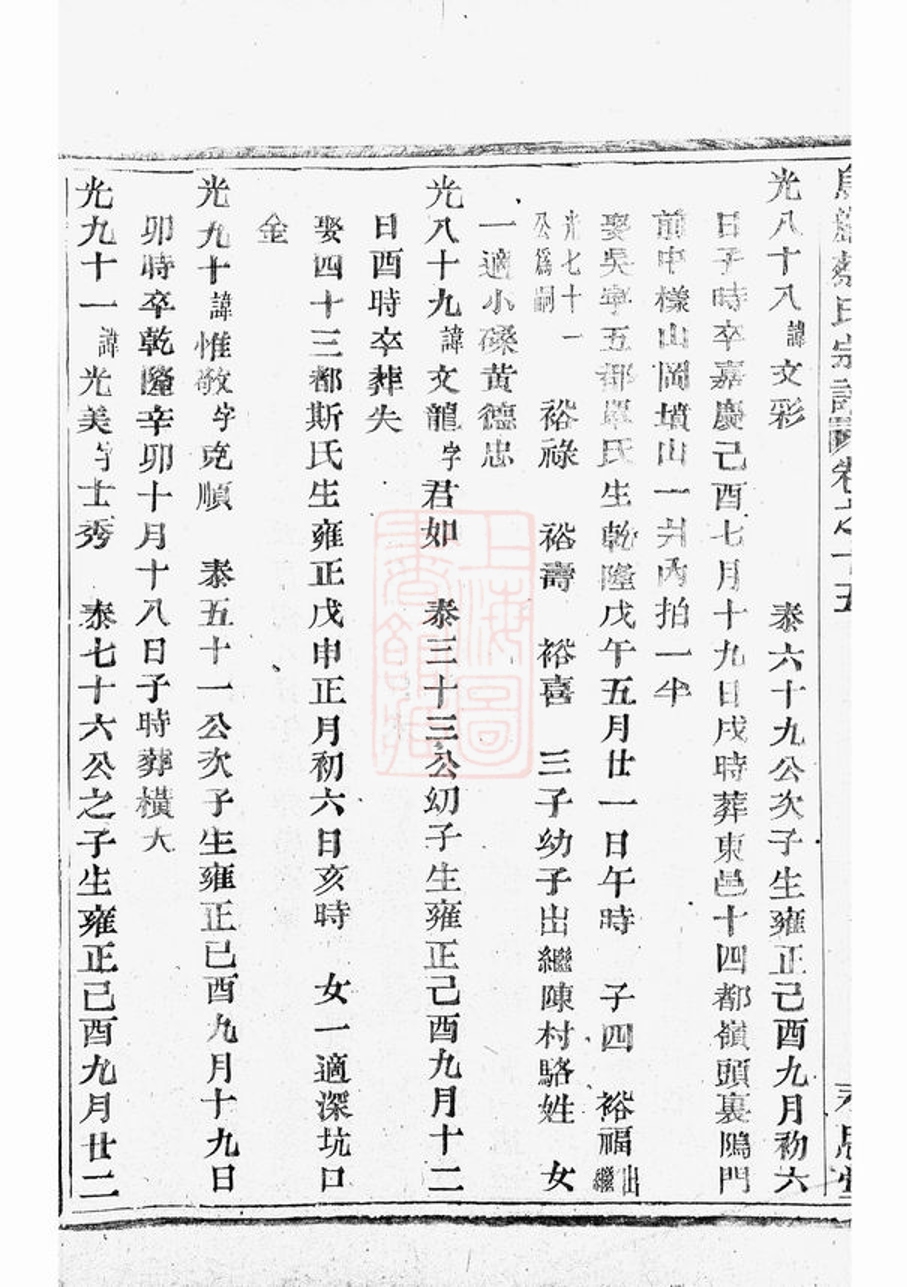 蔡氏宗譜卷之十五
光八十八諱文彩 泰六十九公次子生雍正己酉九月初六
日子時卒嘉慶己酉七月十九日戌時葬東邑十四都嶺頭裏隝門
前中樣山岡墳山一爿內拍一半
娶吳寧五都單氏生乾隆戊午五月廿一日午時 子四 裕福出繼
光七十一公爲嗣 裕祿 裕壽 裕喜 三子幼子出繼陳村駱姓 女
一適小磉黃德忠
光八十九諱文龍字君如 泰三十三公幼子生雍正己酉九月十二
日酉時卒葬失
娶四十三都斯氏生雍正戊申正月初六日亥時 女一適深坑口
金
光九十諱惟敬字克順 泰五十一公次子生雍正己酉九月十九日
卯時卒乾隆辛卯十月十八日子時葬橫大
光九十一諱光美字士秀 泰七十六公之子生雍正己酉九月廿二
上海圖書館藏